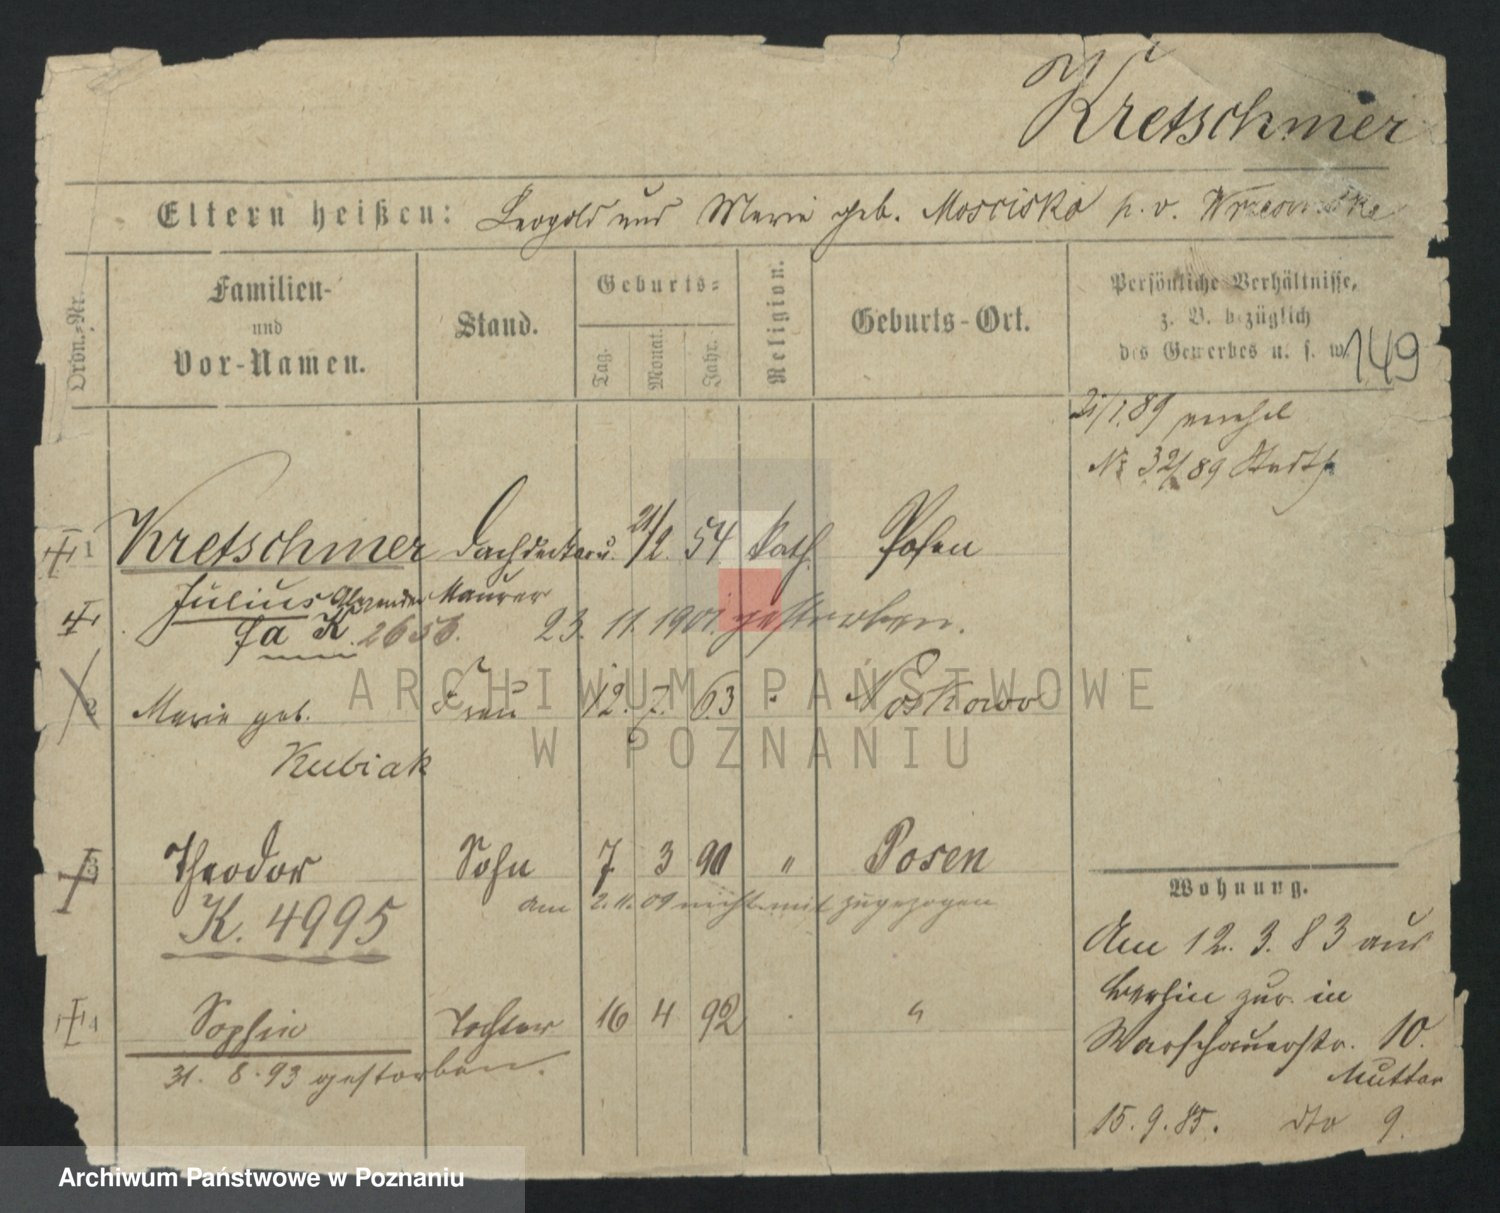 Kretschmer
Eltern heißen: Leopold und Marie geb. Mosciska p. v.
Ordn.-Nr. Familien- und Vor-Namen. Stand. Geburts- Tag. Monat. Jahr. Religion. Geburts-Ort. Persönliche Verhältnisse, z. B. bezüglich des Gewerbes u. s. w.
149
21/1.89 verehel
№ 32/89 Stadt
1 Kretschmer Dachdecker u. 21/2. 54. kath. Posen
Julius Alexander Maurer
fa K. 2656. 23. 11. 1901. gestorben.
2 Marie geb. Frau 12. 7. 63 " Noskowo
Kubiak
3 Theodor Sohn 7 3 90 " Posen
am 2.11.09 nicht mit zugezogen
K. 4995
4 Sophie Tochter 16 4 92 "
31. 8. 93 gestorben.
Wohnung.
Am 12. 3. 83 aus
Berlin zur. in
Warschauerstr. 10.
Mutter
15. 9. 85. dto 9.
ARCHIWUM PAŃSTWOWE
W POZNANIU
Archiwum Państwowe w Poznaniu